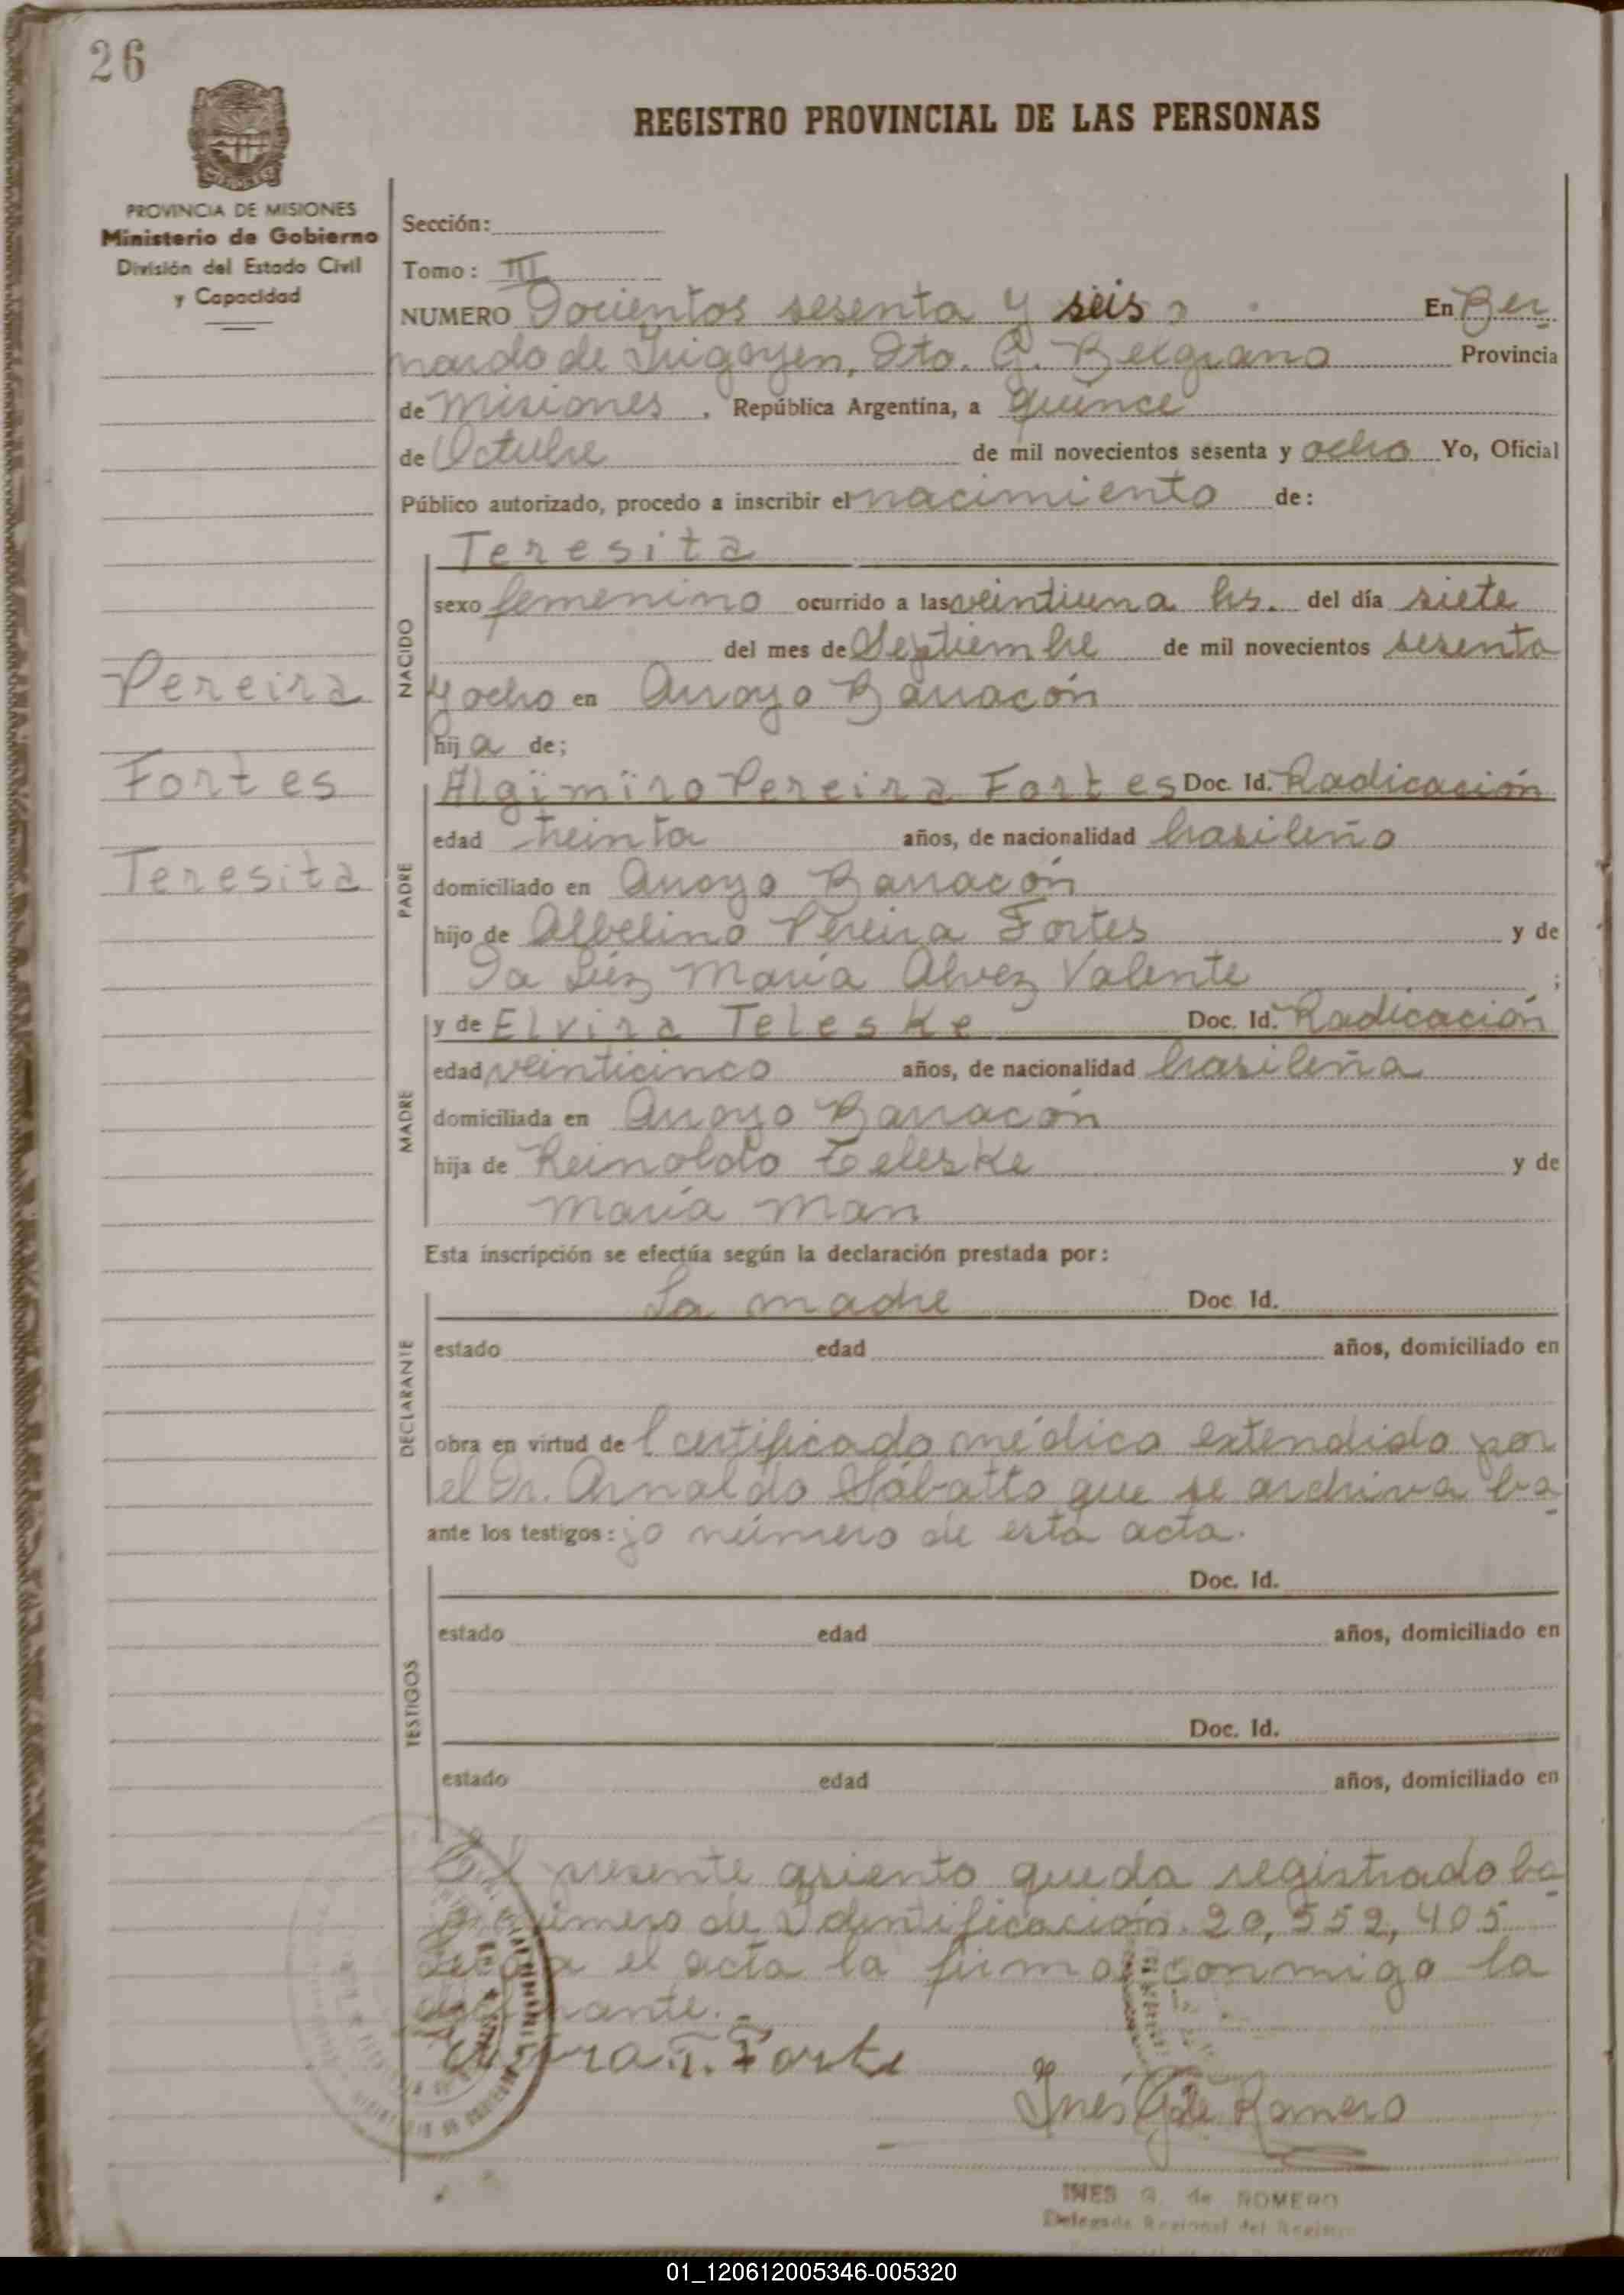 26
REGISTRO PROVINCIAL DE LAS PERSONAS
PROVINCIA DE MISIONES
Ministerio de Gobierno
División del Estado Civil
y Capacidad
Sección:
Tomo: III
NUMERO Docientos sesenta y seis En Ber
nardo de Irigoyen, Dto. G. Belgrano Provincia
de Misiones, República Argentina, a quince
de Octubre de mil novecientos sesenta y ocho Yo, Oficial
Público autorizado, procedo a inscribir el nacimiento de:
Pereira
Fortes
Teresita
NACIDO
Teresita
sexo femenino ocurrido a las veintiuna hs. del día siete
del mes de Septiembre de mil novecientos sesenta
y ocho en Arroyo Barracón
hija de;
PADRE
Algimiro Pereira Fortes Doc. Id. Radicación
edad treinta años, de nacionalidad brasileño
domiciliado en Arroyo Barracón
hijo de Albelino Pereira Fortes y de
Da Luz María Alvez Valente ;
MADRE
y de Elvira Teleske Doc. Id. Radicación
edad veinticinco años, de nacionalidad brasileña
domiciliada en Arroyo Barracón
hija de Reinoldo Teleske y de
María Man
Esta inscripción se efectúa según la declaración prestada por:
DECLARANTE
La madre Doc. Id.
estado edad años, domiciliado en
obra en virtud del certificado médico extendido por
el Dr. Arnaldo Sabatto que se archiva ba
ante los testigos: jo número de esta acta.
TESTIGOS
Doc. Id.
estado edad años, domiciliado en
Doc. Id.
estado edad años, domiciliado en
El presente asiento queda registrado ba
jo número de Identificación 20,552,405
Leída el acta la firma conmigo la
declarante.
Elvira T. Forte
Inés G de Romero
INES G. de ROMERO
Delegada Regional del Registro
01_120612005346-005320